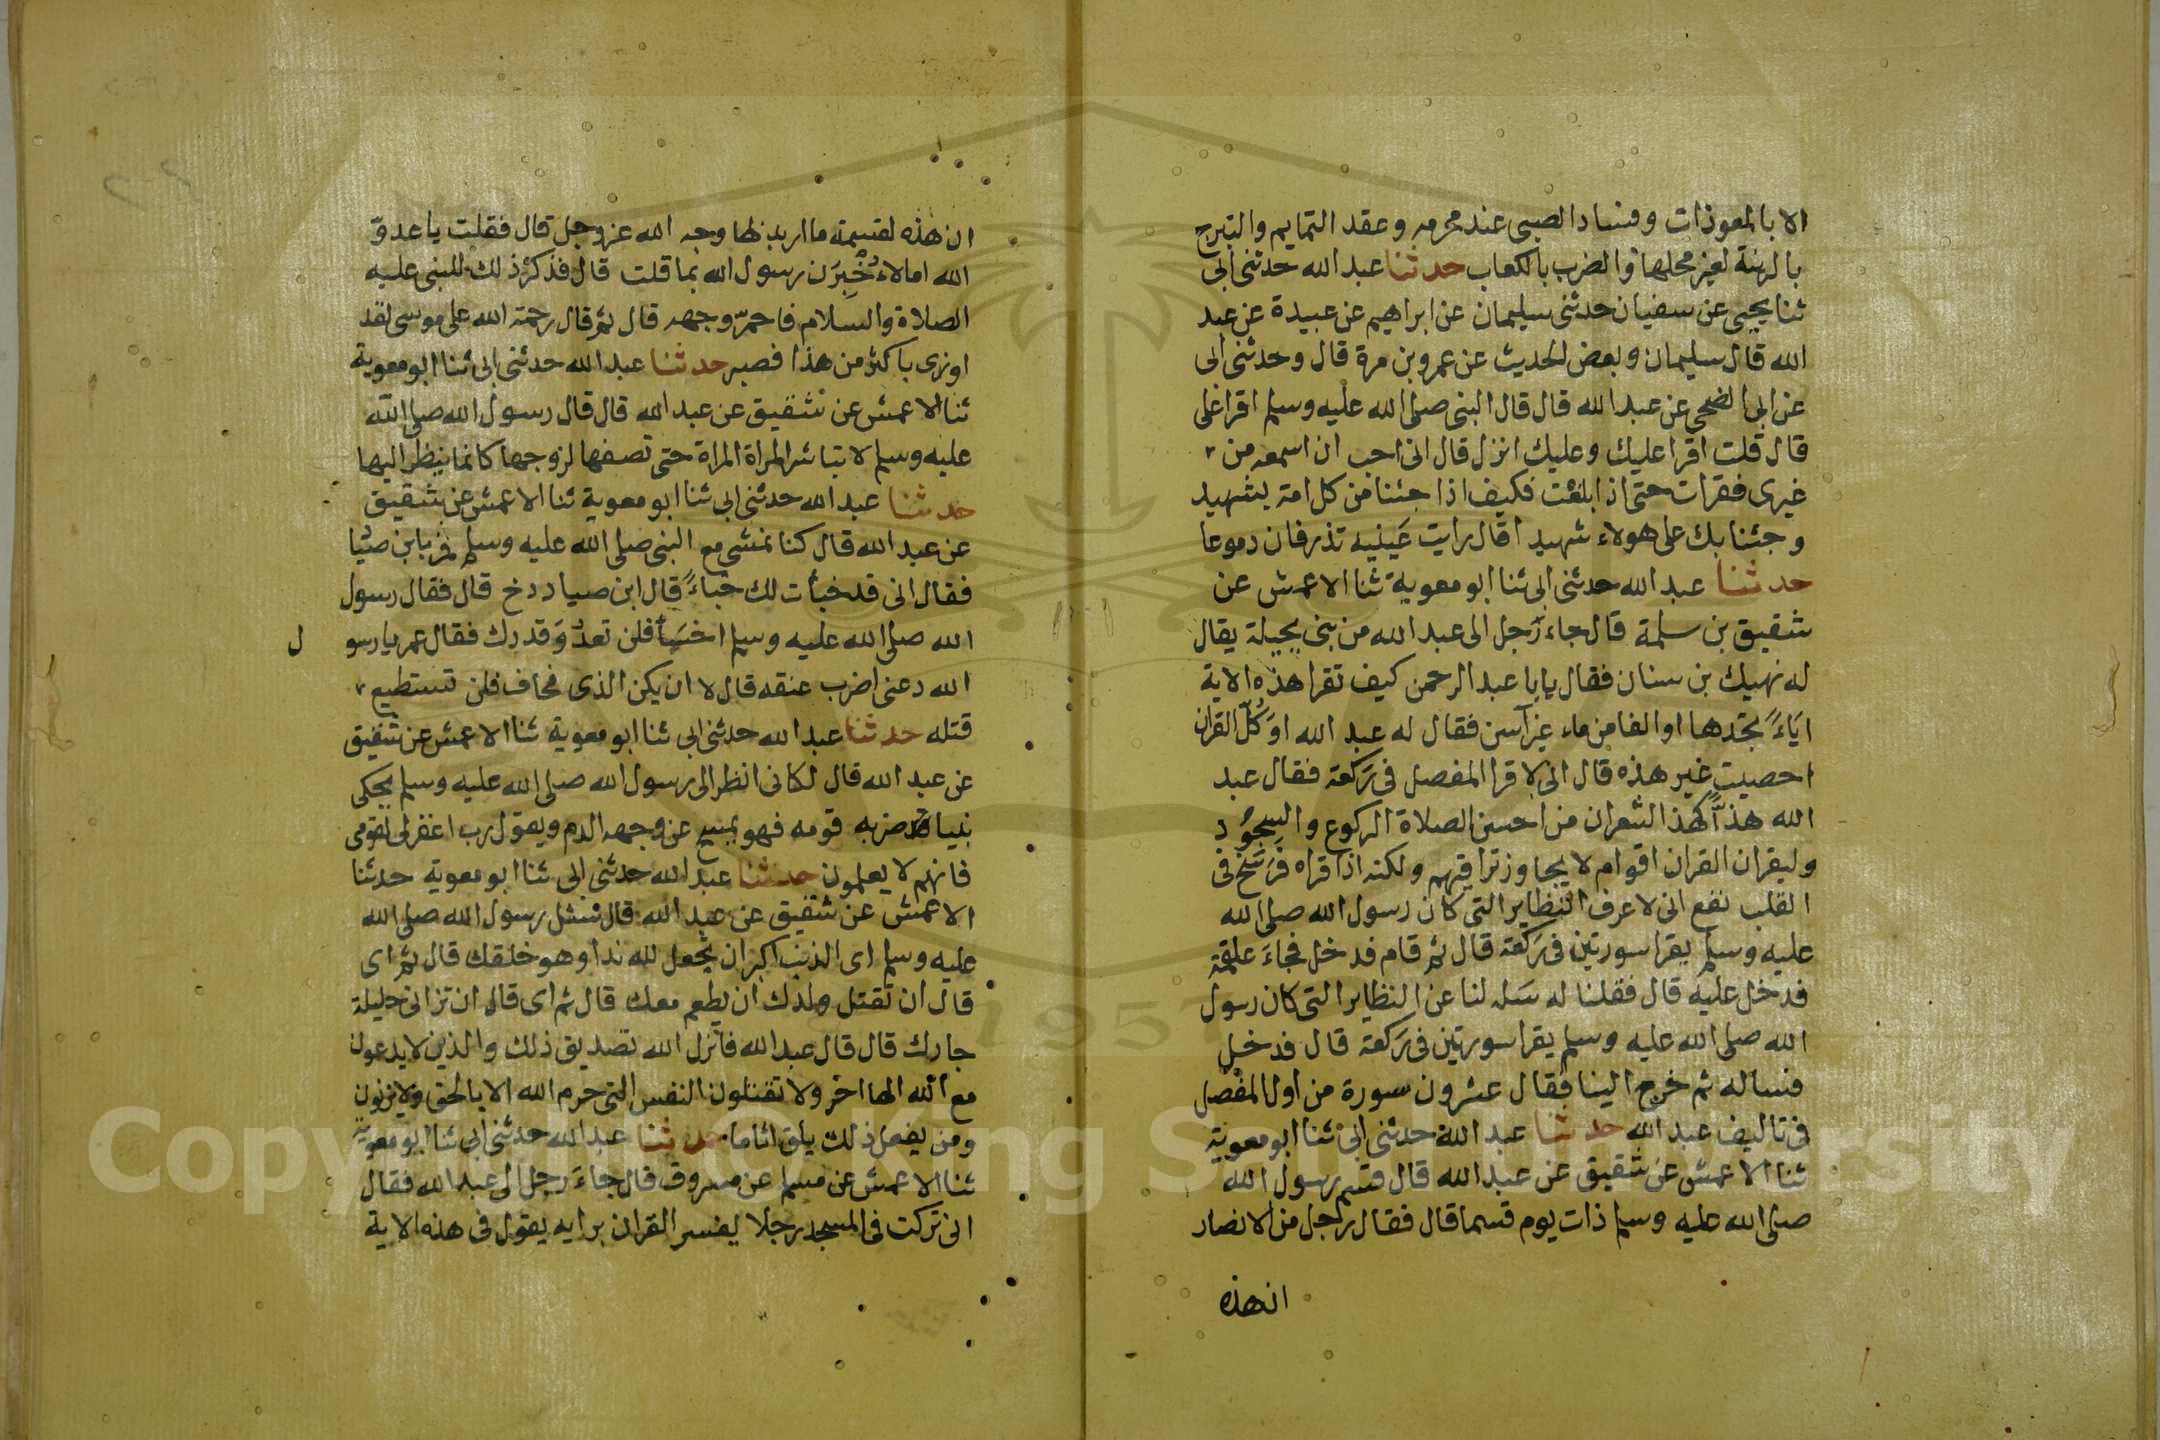 الا بالمعوذات وفساد الصبى عند محرمه وعقد التمايم والتبرج
بالزينة لغير محلها والضرب بالكعاب حدثنا عبد الله حدثنى ابى
ثنا يحيى عن سفيان حدثنى سليمان عن ابراهيم عن عبيدة عن عبد
الله قال سليمان وبعض الحديث عن عمرو بن مرة قال وحدثنى ابى
عن ابى الضحى عن عبد الله قال قال النبى صلى الله عليه وسلم اقرا على
قال قلت اقرا عليك وعليك انزل قال انى احب ان اسمعه من
غيرى فقرات حتى اذا بلغت فكيف اذا جئنا من كل امة بشهيد
وجئنا بك على هولاء شهيدا قال رايت عَينيه تذرفان دموعا
حدثنا عبد الله حدثنى ابى ثنا ابو معوية ثنا الاعمش عن
شقيق بن سلمة قال جاء رَجل الى عبد الله من بنى بجيلة يقال
له نهيك بن سنان فقال يابا عبد الرحمن كيف تقرا هذه الاية
اياءً تجدها او الفا من ماء غير آسن فقال له عبد الله اوَكُلّ القران
احصيت غير هذه قال انى لاقرا المفصل فى رَكعة فقال عبد
الله هذّاً كهَذّ الشعران من احسن الصلاة الركوع والسجود
وليقران القران اقوام لا يجاوز تراقيهم ولكنه اذا قراه فرَسَخ فى
القلب نفع انى لاعرف النظاير التى كان رسول الله صلى الله
عليه وسلم يقرا سورتين فى رَكعة قال ثم قام فدخل فجاءَ علقمة
فدخل عليه قال فقلنا له سَله لنا عن النظاير التى كان رسول
الله صلى الله عليه وسلم يقرا سورتين فى رَكعة قال فدخل
فساله ثم خرج الينا فقال عشرون سورة من اول المفصل
فى تاليف عبد الله حدثنا عبد الله حدثنى ابى ثنا ابو معوية
ثنا الاعمش عن شقيق عن عبد الله قال قسم رسول الله
صلى الله عليه وسلم ذات يوم قسما قال فقال رجل من الانصار
ان هذه
ان هذه لقسمة ما اريد بها وجه الله عز وجل قال فقلت يا عدوّ
الله اما لاُخْبِرَن رسول الله بما قلت قال فذكرُ ذلك للنبى عليه
الصلاة والسلام فاحمرّ وجهه قال ثم قال رحمة الله على موسى لقد
اوذى باكثر من هذا فصبر حدثنا عبد الله حدثنى ابى ثنا ابو معوية
ثنا الاعمش عن شقيق عن عبد الله قال قال رسول الله صلى الله
عليه وسلم لا تباشر المراة المراة حتى تصفها لزوجها كانما ينظر اليها
حدثنا عبد الله حدثنى ابى ثنا ابو معوية ثنا الاعمش عن شقيق
عن عبد الله قال كنا نمشى مع النبى صلى الله عليه وسلم فمر بابن صيا
فقال انى قد خبأت لك خباءً قال ابن صياد دخ قال فقال رسول
الله صلى الله عليه وسلم اخسَأ فلن تعدُوَ قدرك فقال عمر يا رسو ل
الله دعنى اضرب عنقه قال لا ان يكن الذى نخاف فلن تستطيع
قتله حدثنا عبد الله حدثنى ابى ثنا ابو معوية ثنا الاعمش عن شقيق
عن عبد الله قال لكانى انظر الى رسول الله صلى الله عليه وسلم يحكى
نبيا ضربه قومه فهو يمسح عن وجهه الدم ويقول رب اغفر لى لقومى
فانهم لا يعلمون حدثنا عبد الله حدثنى ابى ثنا ابو معوية حدثنا
الاعمش عن شقيق عن عبد الله قال سئل رسول الله صلى الله
عليه وسلم اى الذنب اكبر ان تجعل لله ندا وهو خلقك قال ثم اى
قال ان تقتل ولدك ان يطعم معك قال ثم اى قال ان تزانى حليلة
جارك قال قال عبد الله فانزل الله تصديق ذلك والذين لا يدعون
مع الله الها اخر ولا تقتلون النفس التى حرم الله الا بالحق ولا يزنون
ومن يفعل ذلك يلق اثاما حدثنا عبد الله حدثنى ابى ثنا ابو معوية
ثنا الاعمش عن مسلم عن مسروق قال جاءَ رجل الى عبد الله فقال
انى تركت فى المسجد رجلا يفسر القران برايه يقول فى هذه الاية